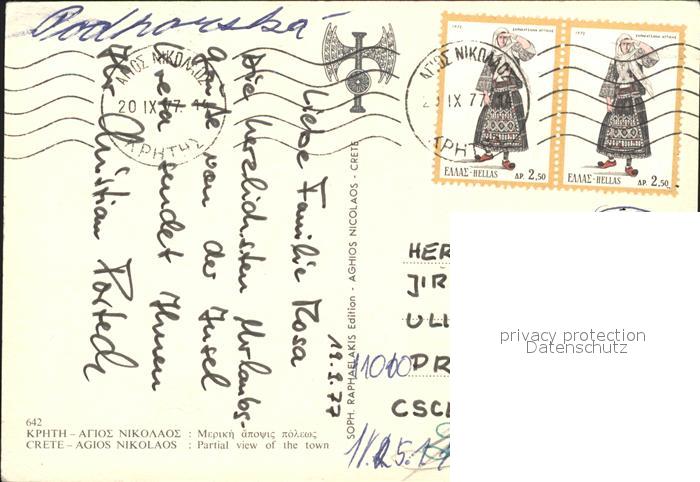 Podhorská
ΑΓΙΟΣ ΝΙΚΟΛΑΟΣ
20 IX 77
ΚΡΗΤΗΣ
ΑΓΙΟΣ ΝΙΚΟΛΑΟΣ
20 IX 77
ΚΡΗΤΗΣ
1972
ΕΛΛΑΣ-HELLAS ΔΡ. 2,50
ΕΛΛΑΣ-HELLAS ΔΡ. 2,50
18.9.77
Liebe Familie Kosa
die herzlichsten Urlaubs-
grüße von der Insel
Kreta sendet Ihnen
Ihr Christian Portech
SOPH. RAPHAELAKIS Edition - AGHIOS NICOLAOS - CRETE
HER
JIR
ULI
11000 PR
CSC
11.25.1
privacy protection
Datenschutz
642
ΚΡΗΤΗ – ΑΓΙΟΣ ΝΙΚΟΛΑΟΣ : Μερική άποψις πόλεως
CRETE – AGIOS NIKOLAOS : Partial view of the town